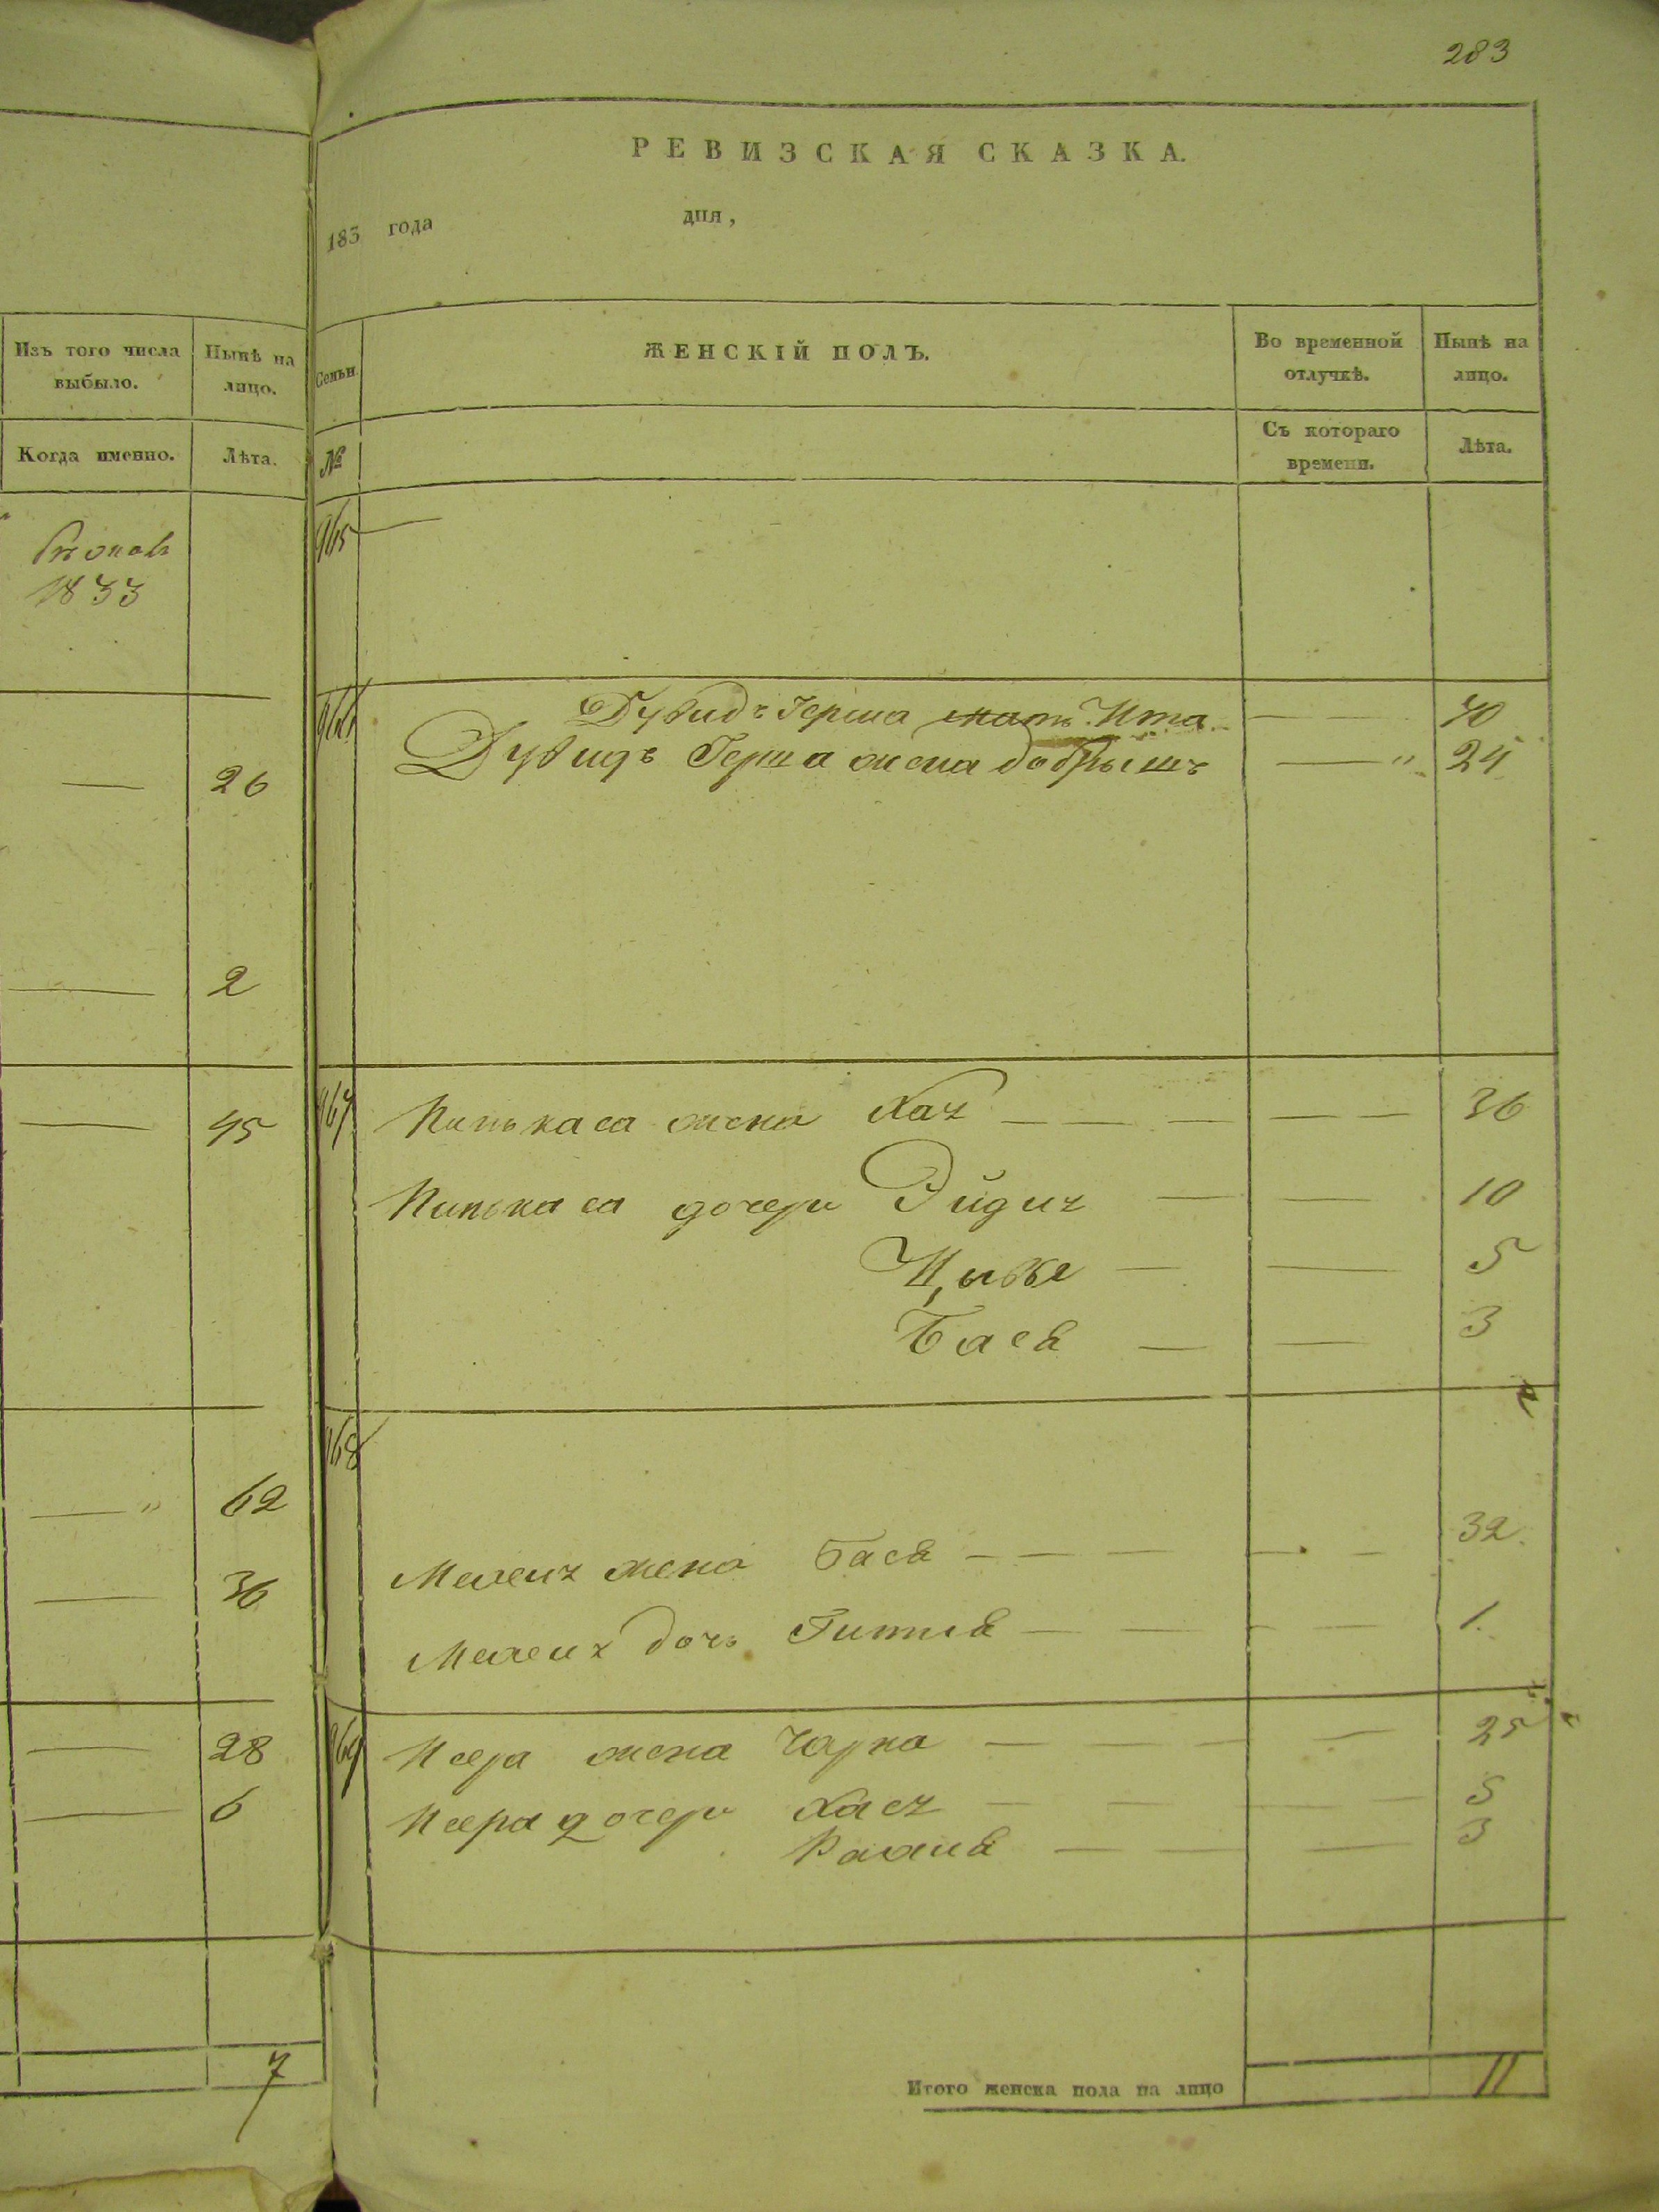 283
РЕВИЗСКАЯ СКАЗКА.
183 года дня,
Изъ того числа выбыло.
Нынѣ на лицо.
Когда именно.
Лѣта.
1833
26
2
45
62
36
28
6
7
Семьи.
ЖЕНСКІЙ ПОЛЪ.
Во временной отлучкѣ.
Нынѣ на лицо.
№
Съ котораго времени.
Лѣта.
965
966 Дувидъ Герша мать Ита — — 70
Дувидъ Герша жена Добрышъ — " 24
967 Пинькаса жена Хая — — — — — 36
Пинькаса дочери — — 10
Цывье — — 5
Бася — — 3
968
жена Бася — — — — — 32
дочь Гитля — — — — 1.
969 жена Чарна — — — — 25
дочери — — — — — 5
— — — 3
Итого женска пола на лицо 11